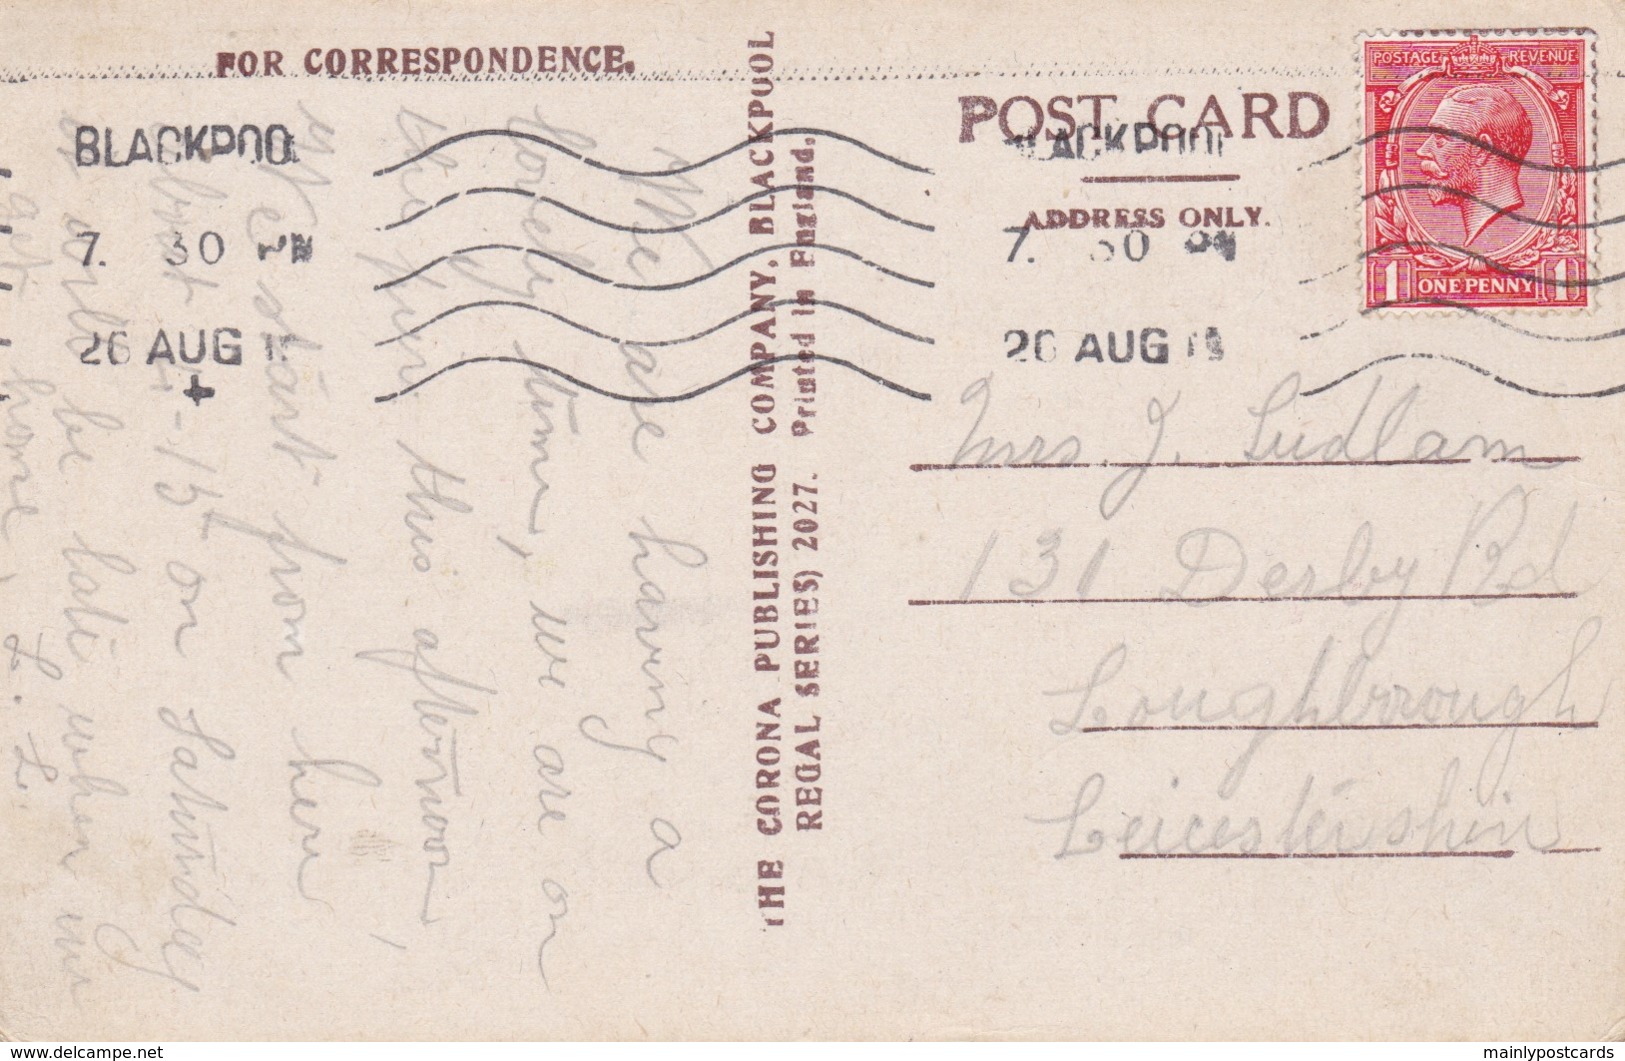 FOR CORRESPONDENCE.
POST CARD
ADDRESS ONLY.
POSTAGE REVENUE
1 ONE PENNY 1
BLACKPOO
7. 30 PM
26 AUG
BLACKPOOL
7. 30 PM
26 AUG 19
We are having a
lovely time, we are on
the pier this afternoon,
We start from here
about 4-15 on Saturday
so will be late when we
get home. L. L.
THE CORONA PUBLISHING COMPANY, BLACKPOOL
REGAL SERIES) 2027. Printed in England.
Mrs. J. Ludlam
131 Derby Rd
Loughbrough
Leicestershire
delcampe.net
mainlypostcards